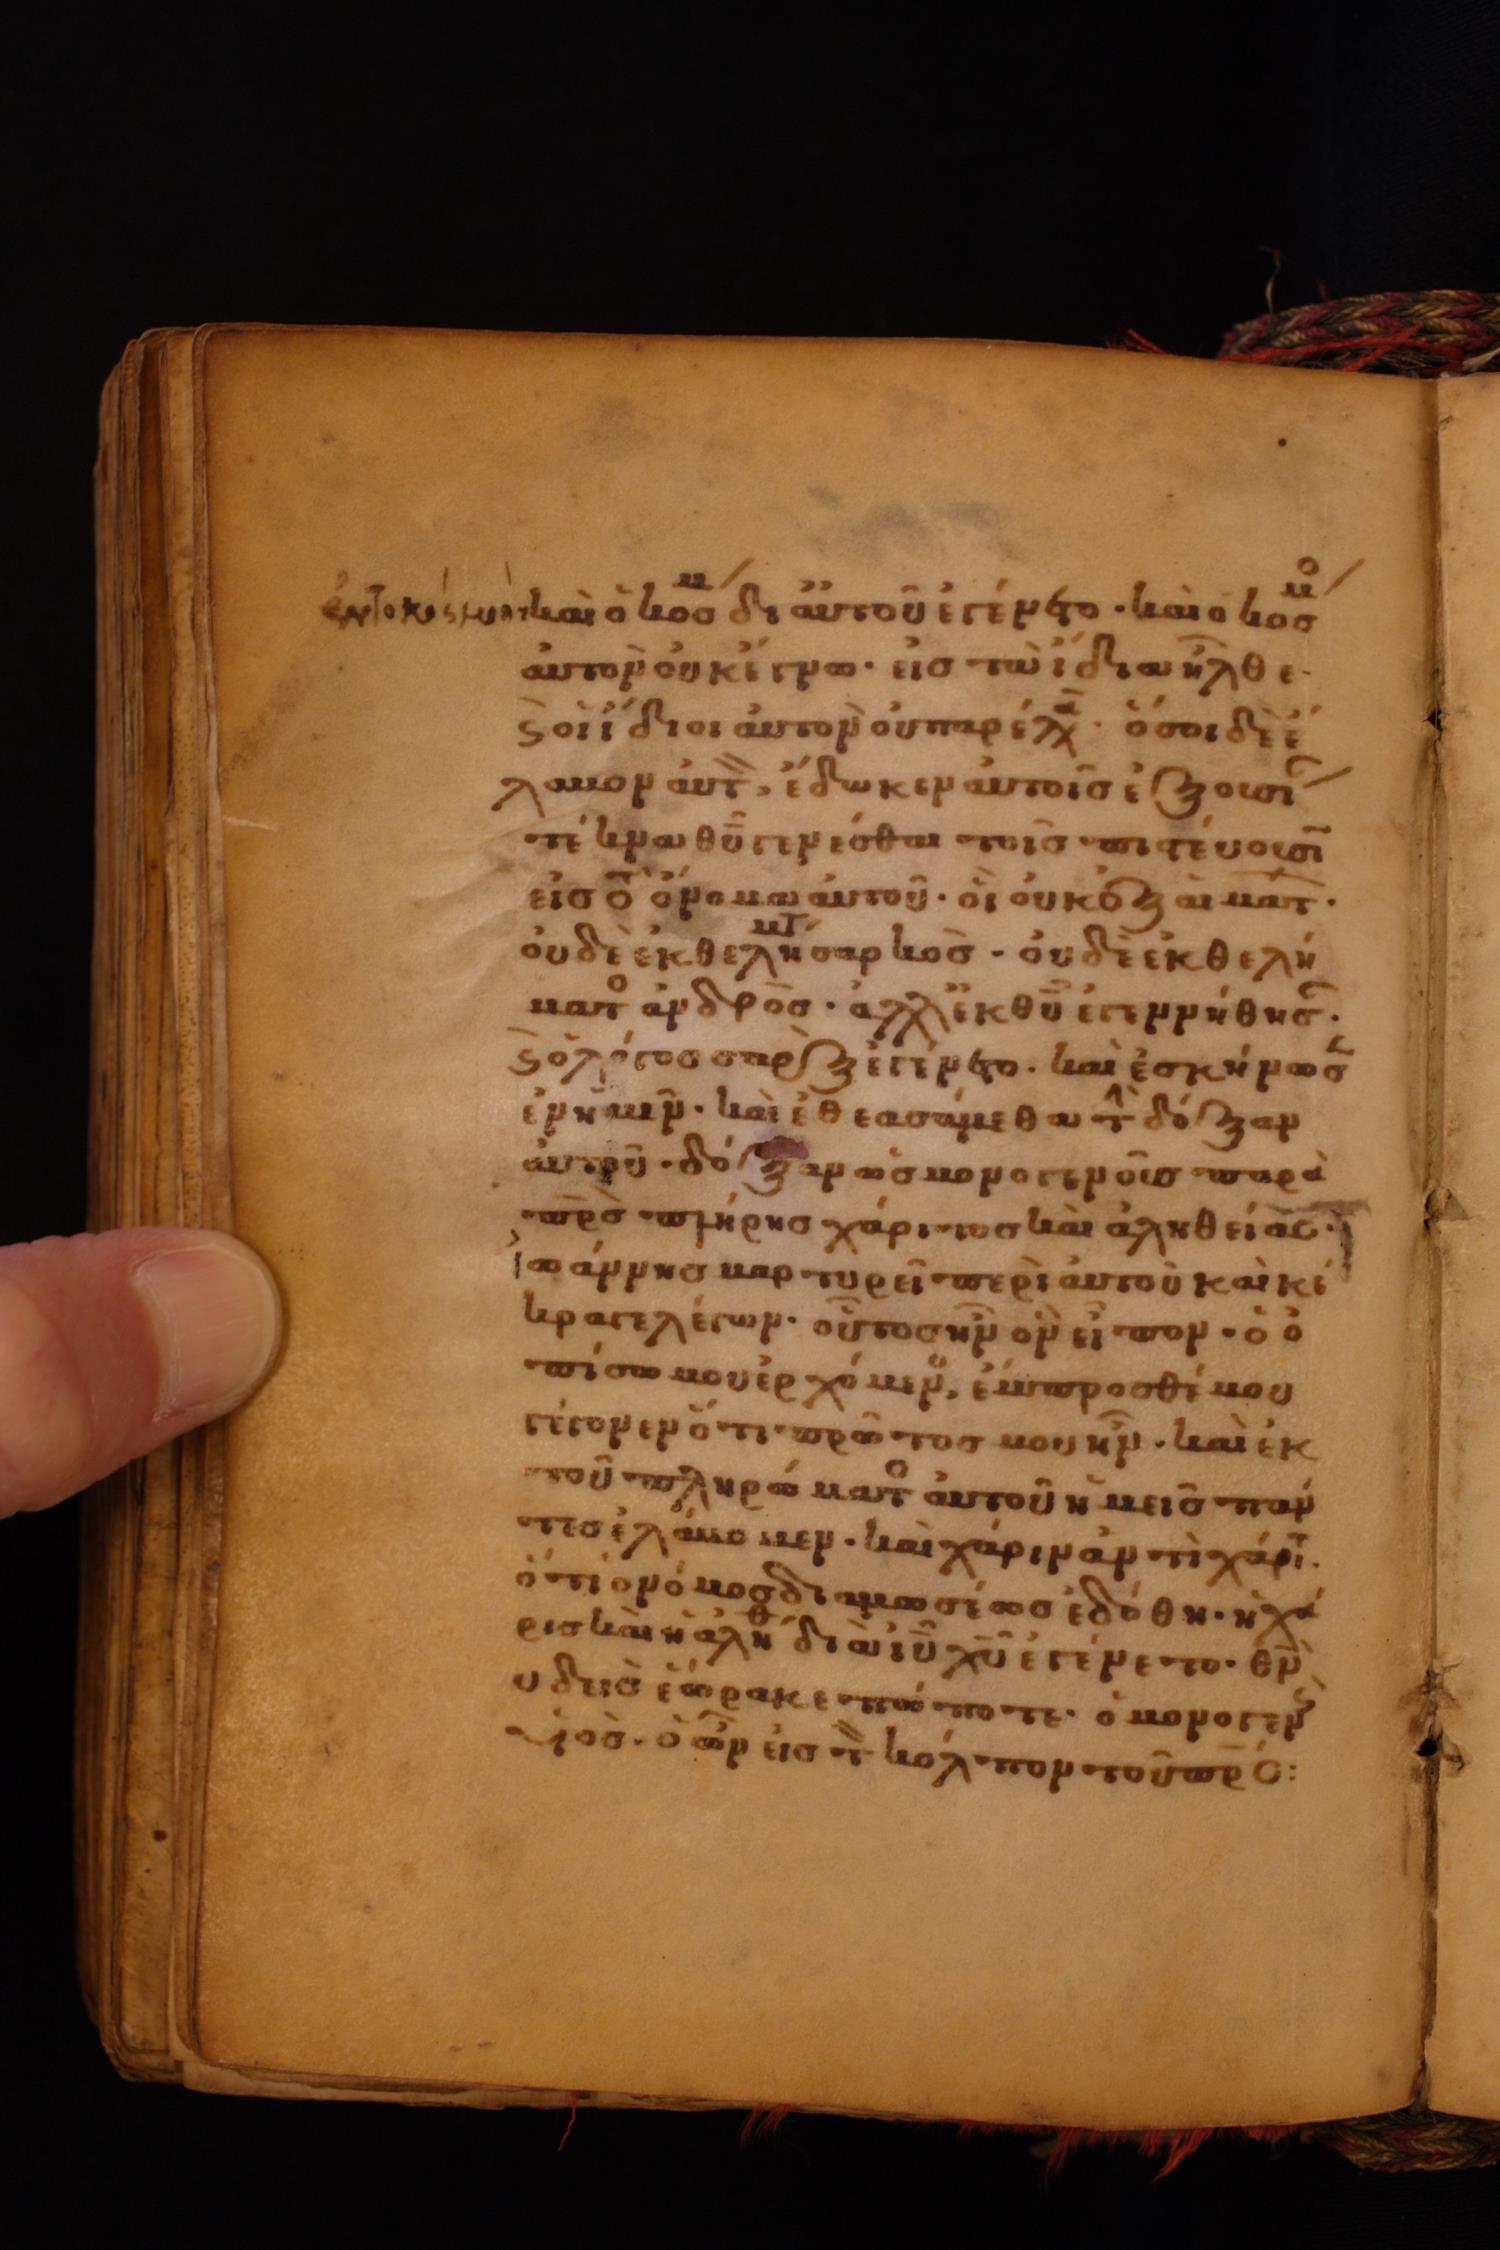 ἐν τῶ κόσμω ἦν καὶ ὁ κοσμ δι ἀυτοῦ ἐγένετο · καὶ ὁ κοσμο
ἀυτὸν οὐκ ἔγνω · εἰσ τὰ ἴδια ἦλθε ·
ϗ ὁι ἴδιοι ἀυτὸν οὐ παρέλα · ὅσοι δὲ ἔ
λαβον ἀυτ, ἔδωκεν ἀυτοῖσ ἐξουσι
τέκνα θῦ γενέσθαι τοῖσ πιστέυουσι
εἰσ τὸ ὄνομα ἀυτοῦ · ὁι οὐκ ἐξ αιματ ·
ὀυδὲ ἐκ θελήματ σαρκὸσ · ὀυδὲ ἐκ θελή
ματο ἀνδρὸσ · ἀλλ ἐκ θῦ ἐγεννήθησ ·
ϗ ὁ λόγοσ σαρξ ἐγένετο · καὶ ἐσκήνωσ
ἐν ἡμῖν · καὶ ἐθεασάμεθα τ δόξαν
ἀυτοῦ · δόξαν ὡσ μονογενοῦσ παρὰ
πρσ πλήρησ χάριτοσ καὶ ἀληθείασ ·
ἰωάννησ μαρτυρεῖ περὶ ἀυτοῦ καὶ κέ
κραγε λέγων · οὗτοσ ἦν ὃν εἶπον · ὁ ὀ
πίσω μου ἐρχόμεν, ἔμπροσθέ μου
γέγονεν ὅτι πρῶτοσ μου ἦν · καὶ ἐκ
τοῦ πληρώματο ἀυτοῦ ἡμεῖσ πάν
τεσ ἐλάβομεν · καὶ χάριν ἀντὶ χάρι ·
ὅτι ὁ νόμοσ διὰ μωσέωσ ἐδόθη · ἡ χά
ρισ καὶ ἡ ἀληθ διὰ ἰῦ χῦ ἐγένετο · θν ὀ
υδεὶσ ἑώρακε πώποτε · ὁ μονογεν
υἱὸσ · ὁ ὢν εἰσ τ κόλπον τοῦ πρσ :